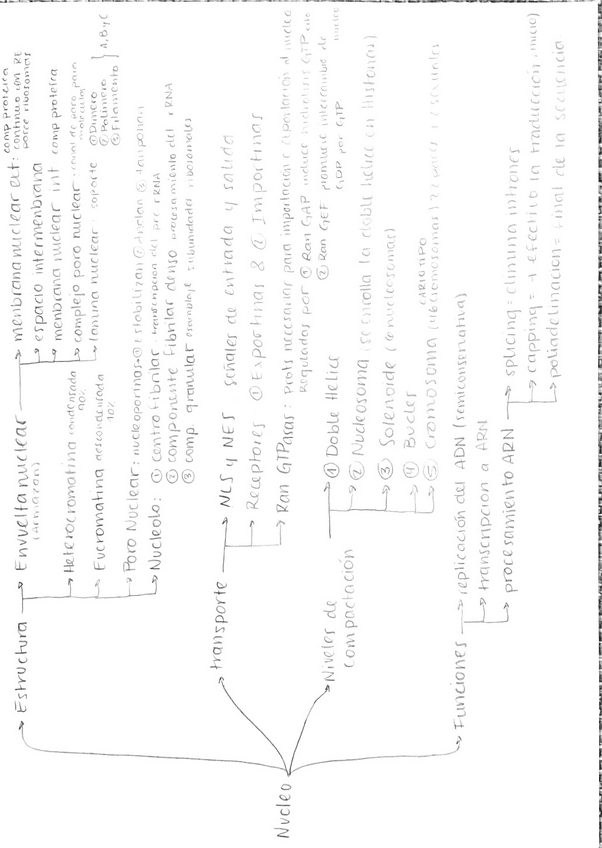 Nucleo
Estructura
Envuelta nuclear
(armazon)
menbrana nuclear ext:
comp proteica
continuo con RE
posee ribosomas
espacio intermenbrana
menbrana nuclear int comp proteica
complejo poro nuclear: canal de paso para
moleculas
lamina nuclear: soporte
① Dimero
② Polimero
③ Filamento
A, B y C
Heterocromatina condensada
90%
Eucromatina descondensada
10%
Poro Nuclear: nucleoporinas ① Estabilizan ② Anclan ③ taponan
Nucleolo: ① centro fibrilar transcripcion del pre rRNA
② componente fibrilar denso procesamiento del rRNA
③ comp granular ensamblaje subunidades ribosomales
transporte
NLS y NES señales de entrada y salida
Receptores ① Exportinas & ② Importinas
Ran GTPasas: Prots necesarias para importacion e exportacion al nucleo
Reguladas por ① Ran GAP
② Ran GEF promueve intercambio de
GDP por GTP
Niveles de
compactación
① Doble Helice
② Nucleosoma (se enrolla la doble helice en histonas)
③ Solenoide (6 nucleosomas)
④ Bucles
⑤ Cromosoma (46 cromosomas)
CARIOTIPO
Funciones
replicación del ADN (semiconservativa)
transcripcion a ARN
procesamiento ARN
splicing = elimina intrones
capping = + efectivo la traducción (inicio)
poliadelinacion = final de la secuencia